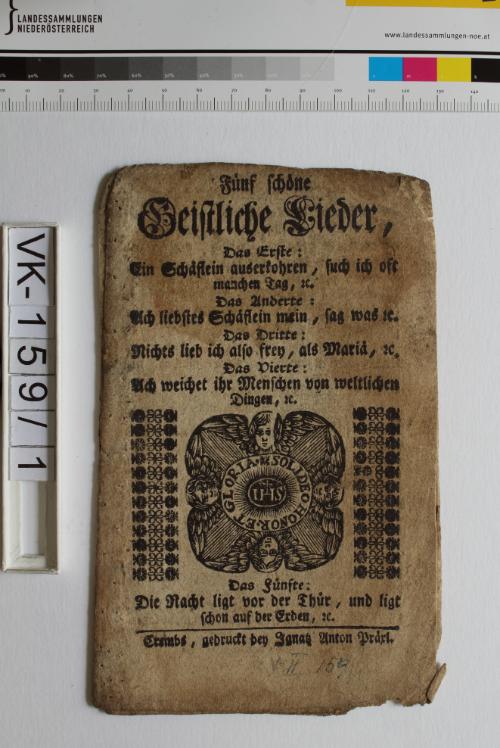 LANDESSAMMLUNGEN
NIEDERÖSTERREICH
www.landessammlungen-noe.at
VK-159/1
Fünf schöne
Geistliche Lieder,
Das Erste:
Ein Schäflein auserkohren, such ich oft
manchen Tag, ꝛc.
Das Anderte:
Ach liebstes Schäflein mein, sag was ꝛc.
Das Dritte:
Nichts lieb ich also frey, als Mariä, ꝛc.
Das Vierte:
Ach weichet ihr Menschen von weltlichen
Dingen, ꝛc.
SOLI DEO HONOR ET GLORIA
IHS
Das Fünfte:
Die Nacht ligt vor der Thür, und ligt
schon auf der Erden, ꝛc.
Crembs, gedruckt bey Ignatz Anton Präxl.